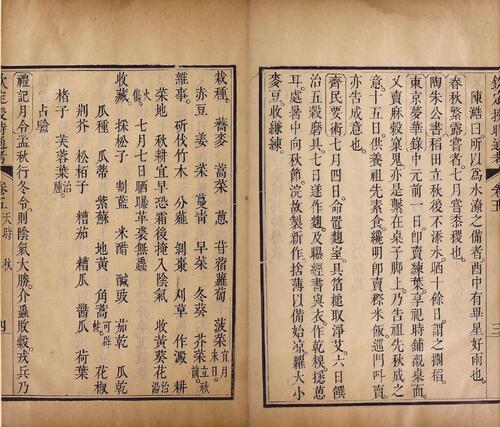 授時通考
三
陳澔曰所以為水澇之備者酉中有畢星好雨也
春秋繁露嘗者七月嘗黍稷也
陶朱公書稻田立秋後不添水晒十餘日謂之擱稻
東京夢華録中元前一日即賣練葉享祀時鋪襯桌面
又賣麻穀窠兒亦是繫在桌子脚上乃告祖先秋成之
意十五日供養祖先素食纔明即賣穄米飯巡門叫賣
亦告成意也
齊民要術七月四日命置麴室具箔槌取淨艾六日饌
治五穀磨具七日遂作麴及曝經書與衣作乾糗採葸
耳處暑中向秋節浣故製新作捨薄以備始凉糶大小
麥豆收縑練
栽種 蕎麥 蒿菜 蔥 苜蓿 蘿蔔 菠菜宜月末日
赤豆 薑 菜 蔓青 早菜 冬葵 芥菜立秋前
雜事 斫伐竹木 分薤 剝棗 刈草 作澱 耕
菜地 秋耕宜早恐霜後掩入陰氣 收黃葵花治湯
火傷 七月七日晒曝革裘無蟲
收藏 採松子 割藍 米醋 鹹豉 茄乾 瓜乾
瓜種 瓜蒂 紫蘇 地黃 角蒿可辟蛀 花椒
荆芥 松栢子 糟茄 糟瓜 醬瓜 荷葉
楮子 芙蓉葉治腫
占驗
禮記月令孟秋行冬令則陰氣大勝介蟲敗穀戎兵乃
欽定授時通考 卷五 天時 秋 四